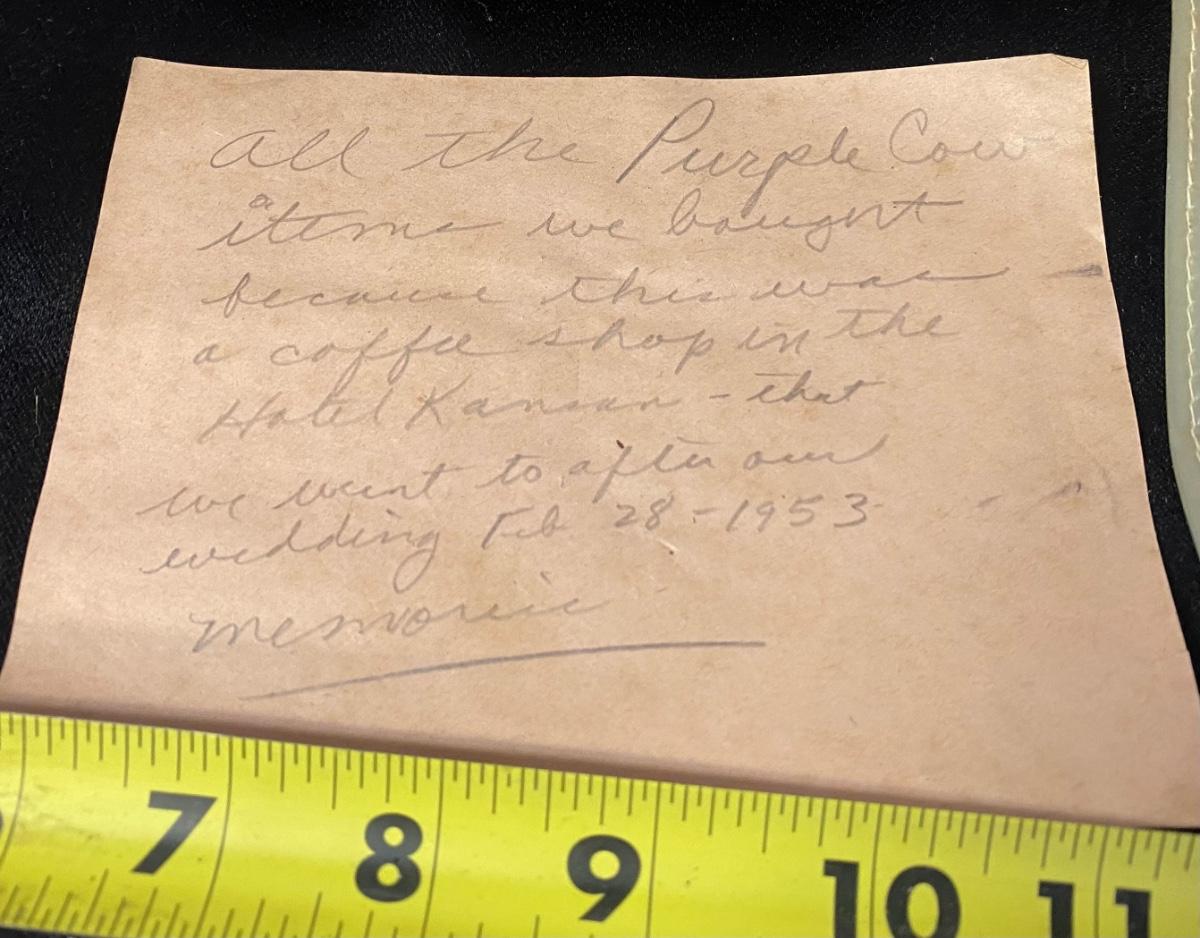 all the Purple Cow
items we bought
because this was
a coffee shop in the
Hotel Kansan - that
we went to after our
wedding Feb 28 - 1953
memories
7 8 9 10 11